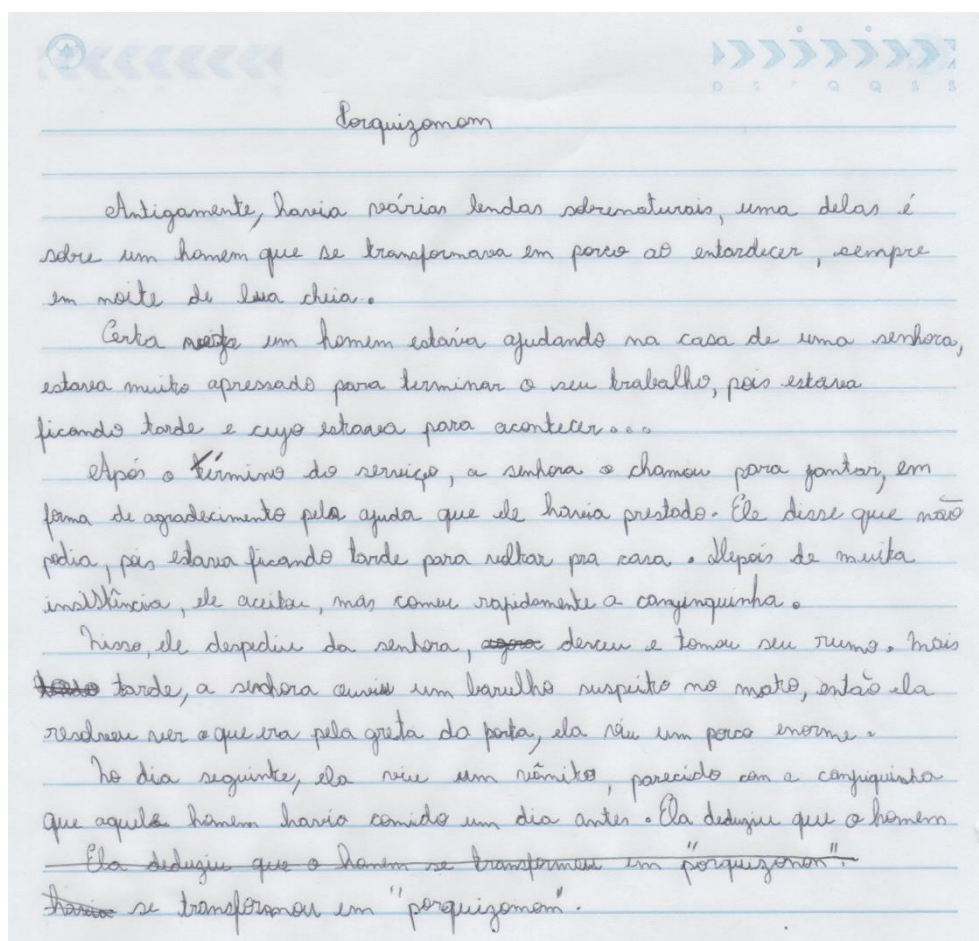 Porquizomom
Antigamente, havia várias lendas sobrenaturais, uma delas é
sobre um homem que se transformava em porco ao entardecer, sempre
em noite de lua cheia.
Certa um homem estava ajudando na casa de uma senhora,
estava muito apressado para terminar o seu trabalho, pois estava
ficando tarde e cujo estava para acontecer...
Após o término do serviço, a senhora o chamou para jantar, em
forma de agradecimento pela ajuda que ele havia prestado. Ele disse que não
podia, pois estava ficando tarde para voltar pra casa. Depois de muita
insistência, ele aceitou, mas comeu rapidamente a canjinquinha.
Nisso, ele despediu da senhora, desceu e tomou seu rumo. Mais
tarde, a senhora ouviu um barulho suspeito no mato, então ela
resolveu ver o que era pela greta da porta, ela viu um porco enorme.
No dia seguinte, ela viu um vômito, parecido com a canjiquinha
que aquele homem havia comido um dia antes. Ela deduziu que o homem
Ela deduziu que o homem se transformou em "porquizomom"
havia se transformou em "porquizomom".